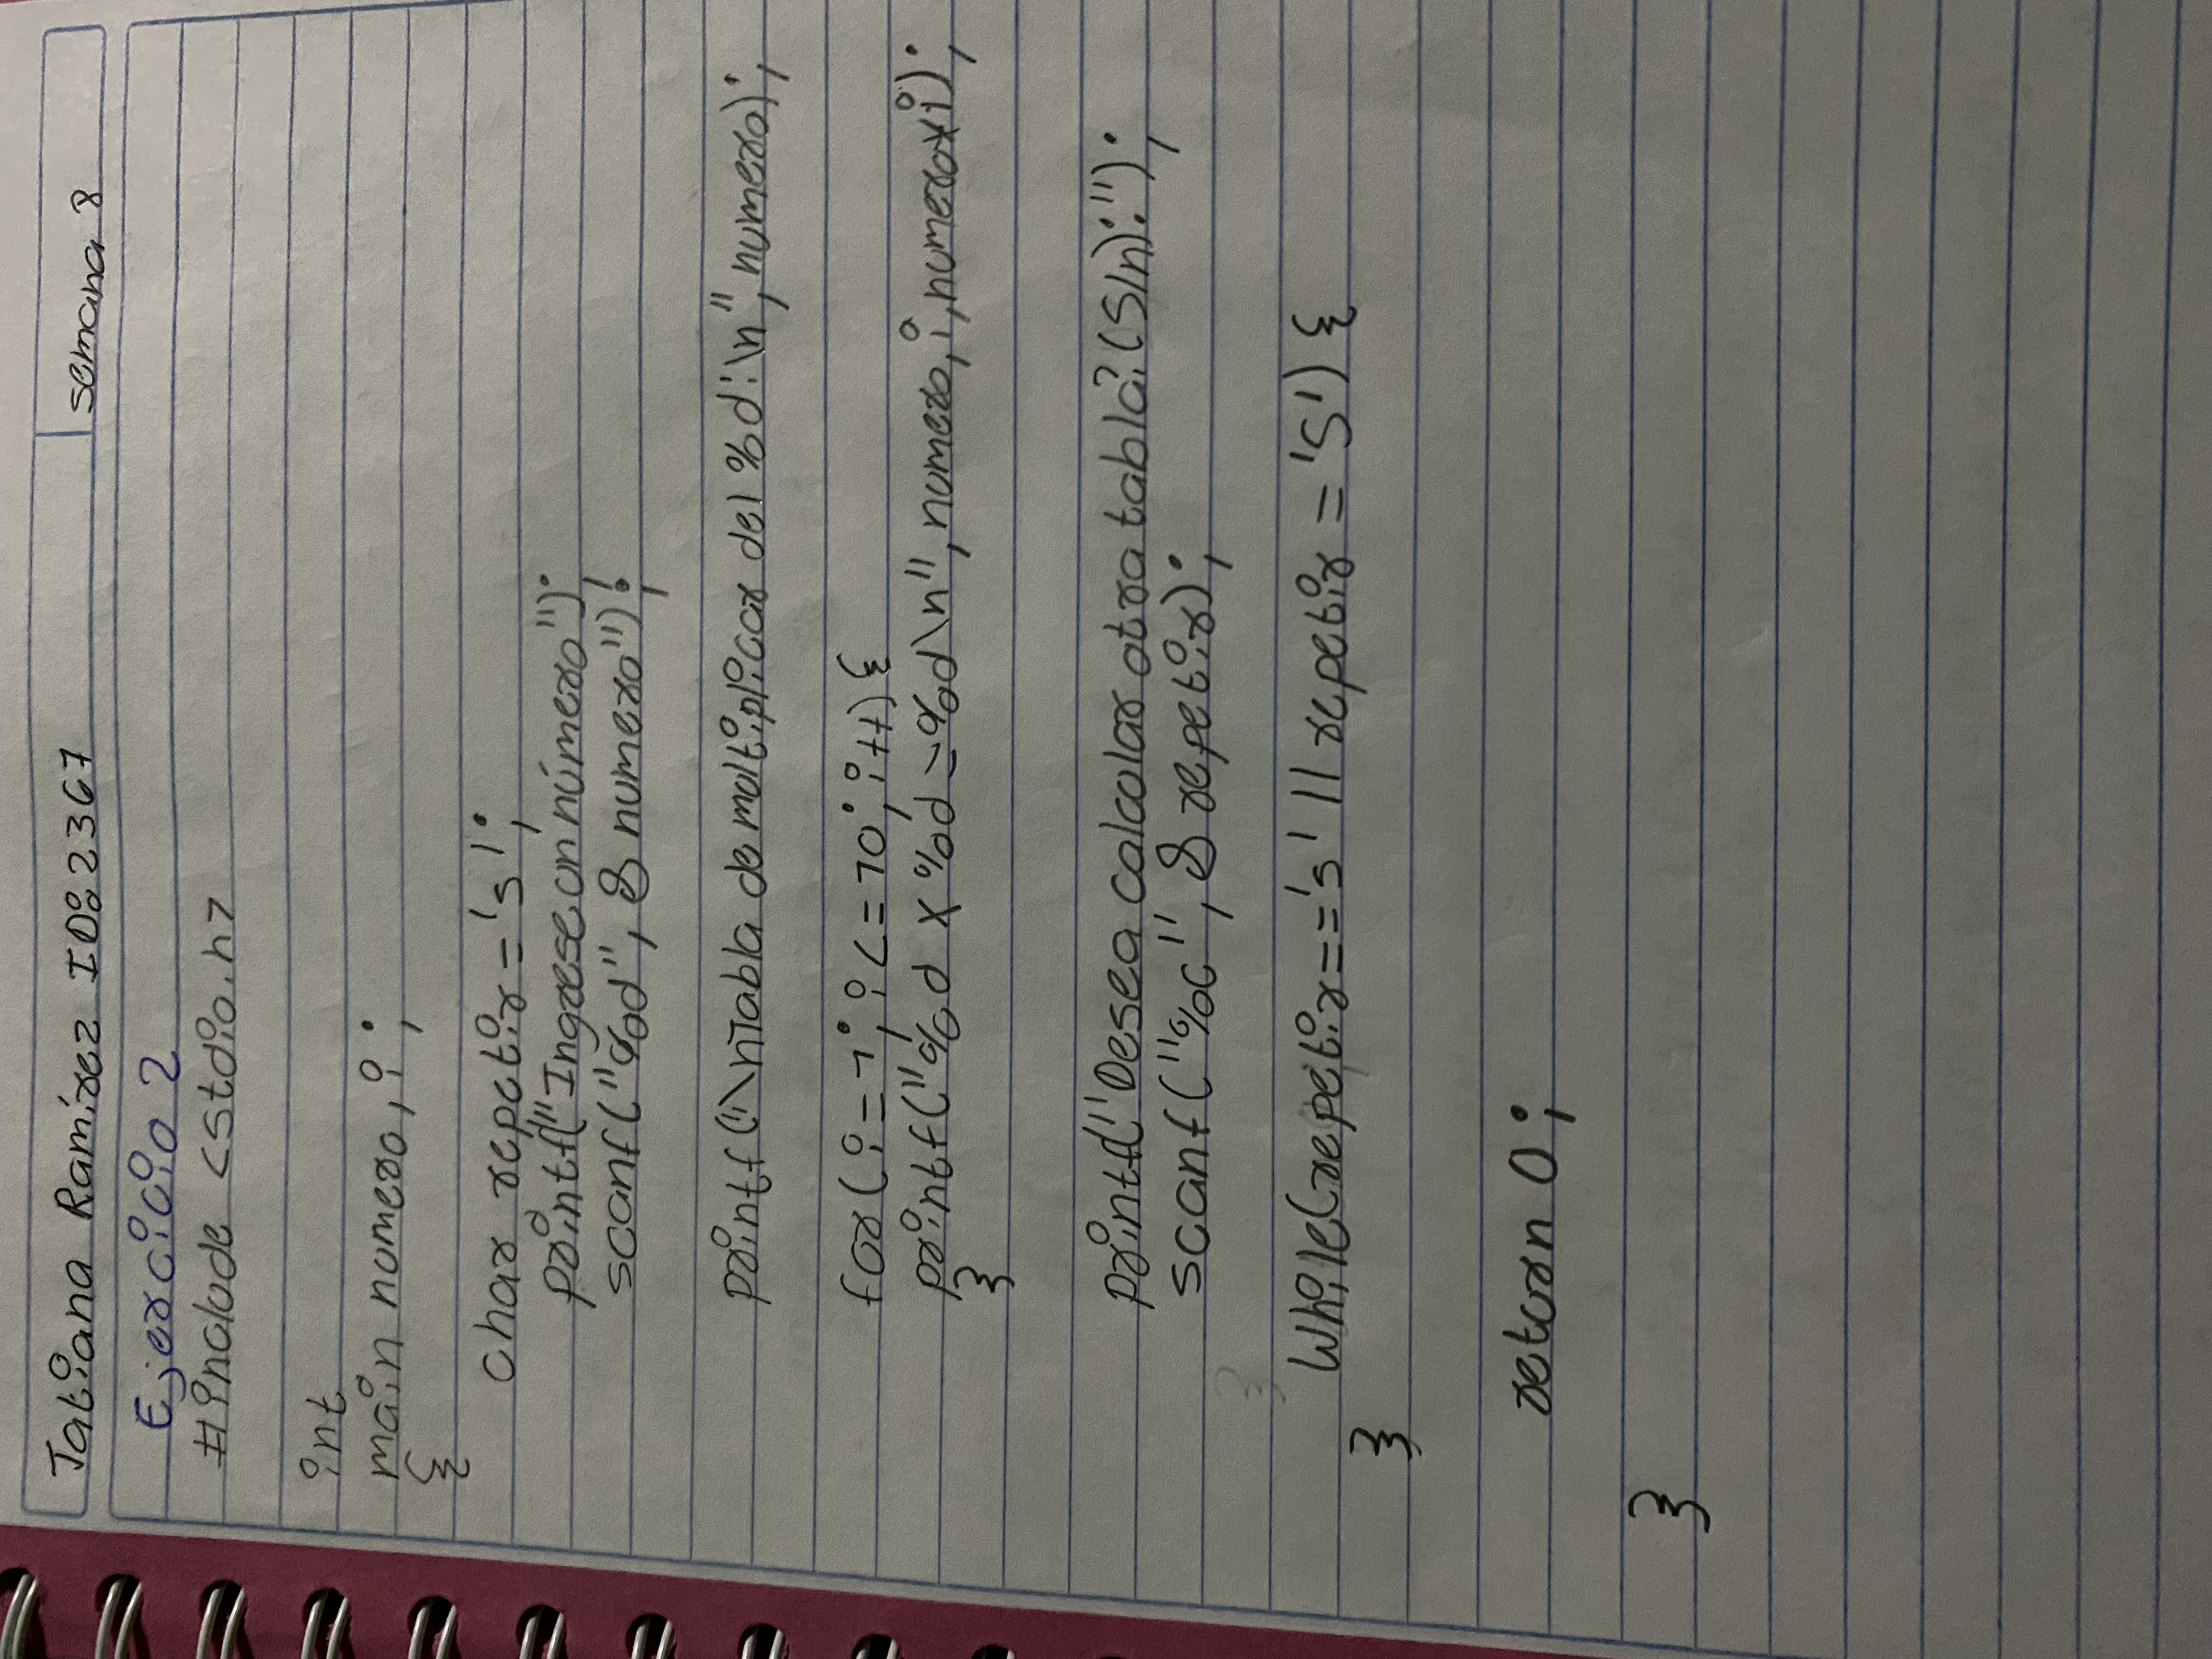 Tatiana Ramírez ID: 2367 semana 8
Ejercicio 2
#include <stdio.h>
int
main numero, i;
{
char repetir = 's';
printf("Ingrese un número");
scanf("%d", & numero");
printf("\nTabla de multiplicar del %d:\n", numero);
for (i = 1; i <= 10; i++) {
printf("%d x %d = %d\n", numero, i, numero*i);
}
printf("Desea calcular otra tabla? (s/n): ");
scanf("%c", & repetir);
}
while(repetir == 's' || repetir = 'S') {
}
return 0;
}